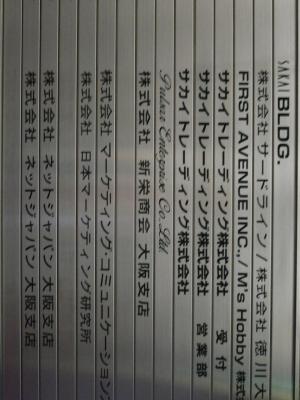 SAKAI BLDG.
株式会社 サードライン/株式会社 徳川大
FIRST AVENUE INC.,/M's Hobby 株式
サカイトレーディング株式会社 受付
サカイトレーディング株式会社 営業部
サカイトレーディング株式会社
Pulsar Enterprise Co. Ltd.
株式会社 新栄商会 大阪支店
株式会社 マーケティング・コミュニケーション
株式会社 日本マーケティング研究所
株式会社 ネットジャパン 大阪支店
株式会社 ネットジャパン 大阪支店